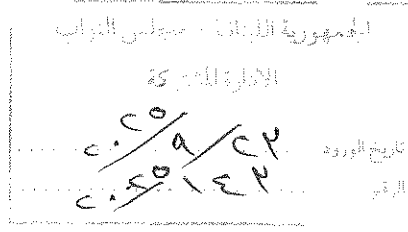 الجمهورية اللبنانية - مجلس النواب
الإدارة المشتركة
تاريخ الورود ٢٣/٩/٢٠٢٥
الرقم ١٤٣/٢٠٢٥